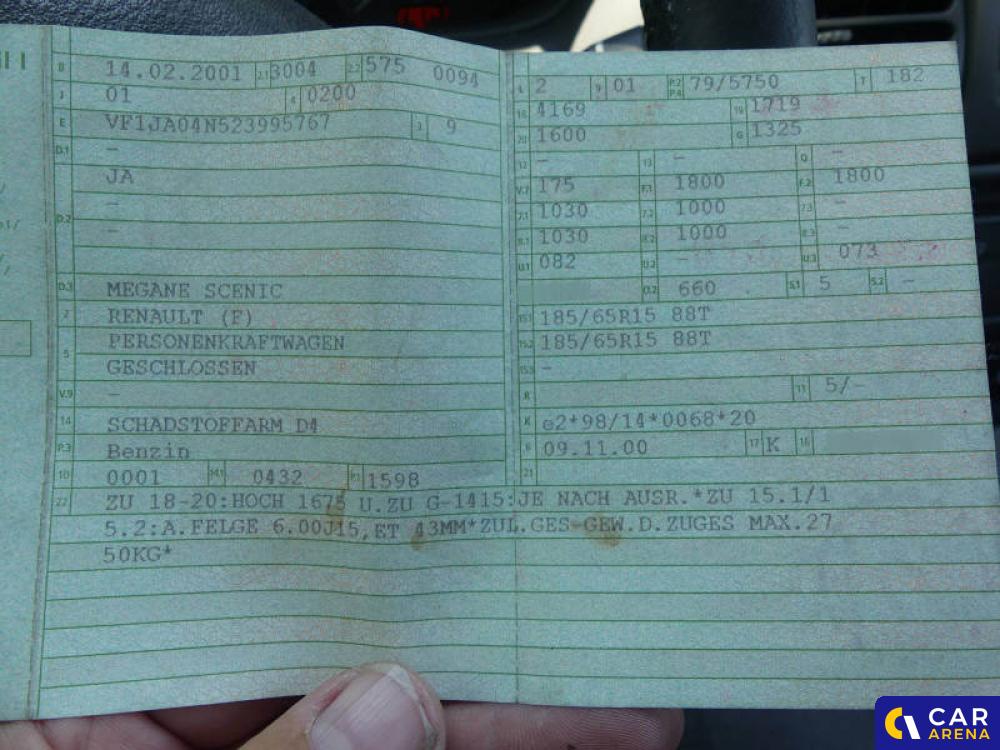 B 14.02.2001 2.1 3004 2.2 575 0094
J 01 4 0200
E VF1JA04N523995767 3 9
D.1 -
JA
D.2 -
-
D.3 MEGANE SCENIC
2 RENAULT (F)
5 PERSONENKRAFTWAGEN
GESCHLOSSEN
V.9 -
14 SCHADSTOFFARM D4
P.3 Benzin
10 0001 14.1 0432 P.1 1598
L 2 9 01 P.2 P.4 79/5750 T 182
18 4169 19 1719
20 1600 G 1325
12 - 13 - Q -
V.7 175 F.1 1800 F.2 1800
7.1 1030 7.2 1000 7.3 -
8.1 1030 8.2 1000 8.3 -
U.1 082 U.2 - U.3 073
O.2 660 S.1 5 S.2 -
15.1 185/65R15 88T
15.2 185/65R15 88T
15.3 -
R 11 5/-
K e2*98/14*0068*20
6 09.11.00 17 K 16
21
22 ZU 18-20:HOCH 1675 U.ZU G-1415:JE NACH AUSR.*ZU 15.1/1
5.2:A.FELGE 6.00J15,ET 43MM*ZUL.GES-GEW.D.ZUGES MAX.27
50KG*
CAR
ARENA